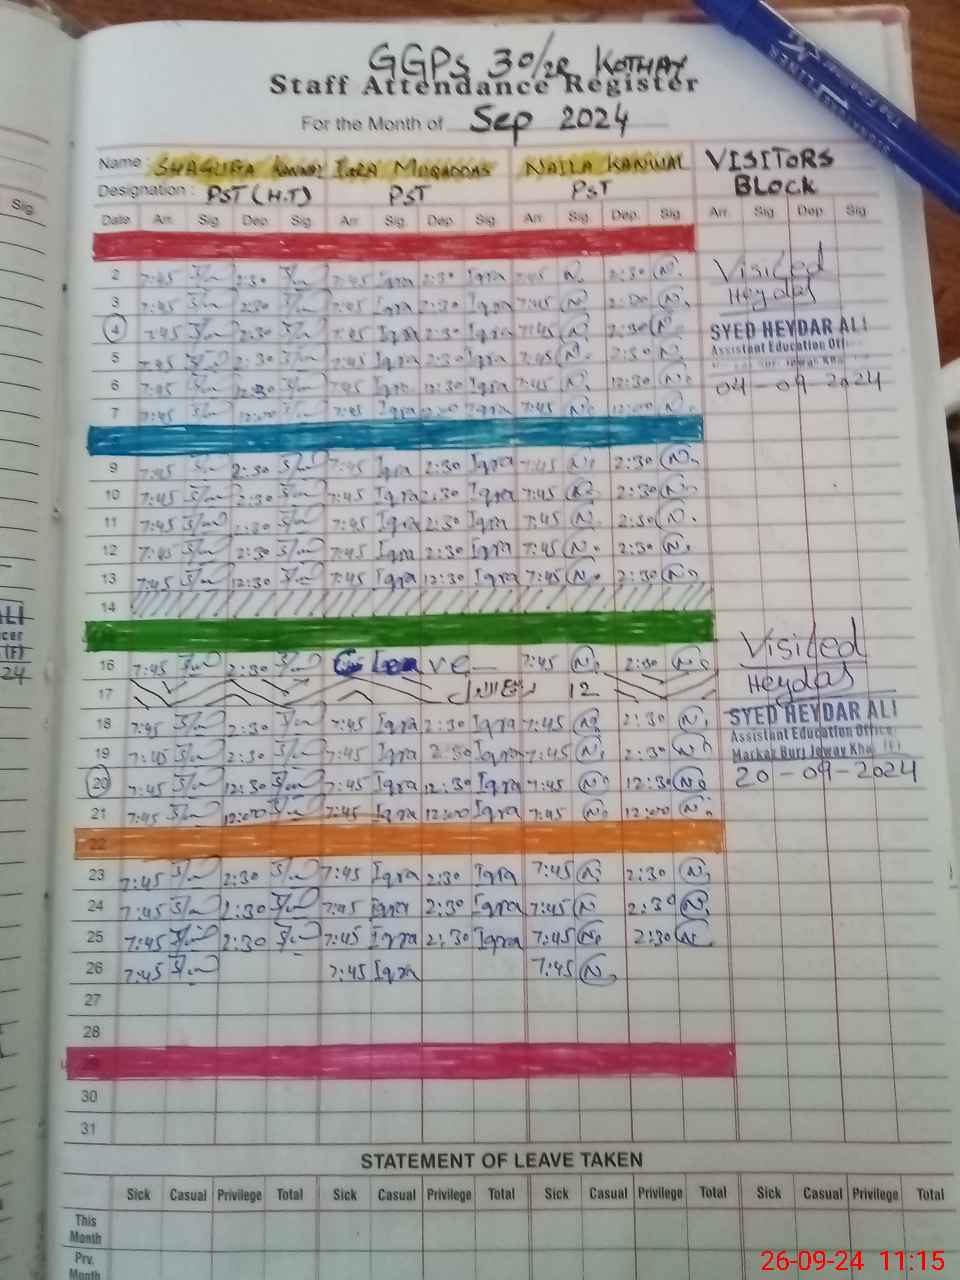 GGPS 30/2R KOTHAY
Staff Attendance Register
For the Month of Sep 2024
Name : SHAGUFTA KANWAL IQRA MUQADDAS NAILA KANWAL VISITORS
Designation : PST (H.T) PST PST BLOCK
Date Arr. Sig. Dep. Sig. Arr. Sig. Dep. Sig. Arr. Sig. Dep. Sig. Arr. Sig. Dep. Sig.
2 7:45 2:30 7:45 Iqra 2:30 Iqra 7:45 N. 2:30 N. Visited
3 7:45 2:30 7:45 Iqra 2:30 Iqra 7:45 N. N. Heydar
4 7:45 2:30 7:45 Iqra 2:30 Iqra 7:45 N. 2:30 N. SYED HEYDAR ALI
Assistant Education Offi
5 7:45 2:30 7:45 Iqra 2:30 Iqra 7:45 N. 2:30 N.
6 7:45 12:30 7:45 Iqra 12:30 Iqra 7:45 N. 12:30 N. 04-09-2024
7 7:45 12:00 7:45 Iqra 12:00 Iqra 7:45 N. 12:00 N.
9 7:45 2:30 7:45 Iqra 2:30 Iqra 7:45 N. 2:30 N.
10 7:45 2:30 7:45 Iqra 2:30 Iqra 7:45 N. 2:30 N.
11 7:45 2:30 7:45 Iqra 2:30 Iqra 7:45 N. 2:30 N.
12 7:45 2:30 7:45 Iqra 2:30 Iqra 7:45 N. 2:30 N.
13 7:45 12:30 7:45 Iqra 12:30 Iqra 7:45 N. 2:30 N.
14
16 7:45 2:30 Leave 7:45 N. 2:30 N. Visited
17 12 Heydar
18 7:45 2:30 7:45 Iqra 2:30 Iqra 7:45 N. 2:30 N. SYED HEYDAR ALI
Assistant Education Office
19 7:45 2:30 7:45 Iqra 2:30 Iqra 7:45 N. 2:30 N. Markaz Burj Jeway Kha
20 7:45 12:30 7:45 Iqra 12:30 Iqra 7:45 N. 12:30 N. 20-09-2024
21 7:45 12:00 7:45 Iqra 12:00 Iqra 7:45 N. 12:00 N.
22
23 7:45 2:30 7:45 Iqra 2:30 Iqra 7:45 N. 2:30 N.
24 7:45 2:30 7:45 Iqra 2:30 Iqra 7:45 N 2:30 N.
25 7:45 2:30 7:45 Iqra 2:30 Iqra 7:45 N. 2:30 N.
26 7:45 7:45 Iqra 7:45 N.
27
28
29
30
31
STATEMENT OF LEAVE TAKEN
Sick Casual Privilege Total Sick Casual Privilege Total Sick Casual Privilege Total Sick Casual Privilege Total
This
Month
Prv.
Month
26-09-24 11:15